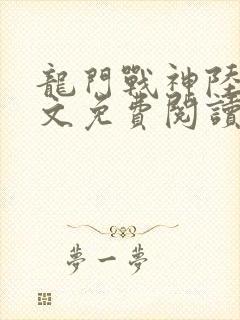 龍門戰神陸
文免費閱讀
夢一夢